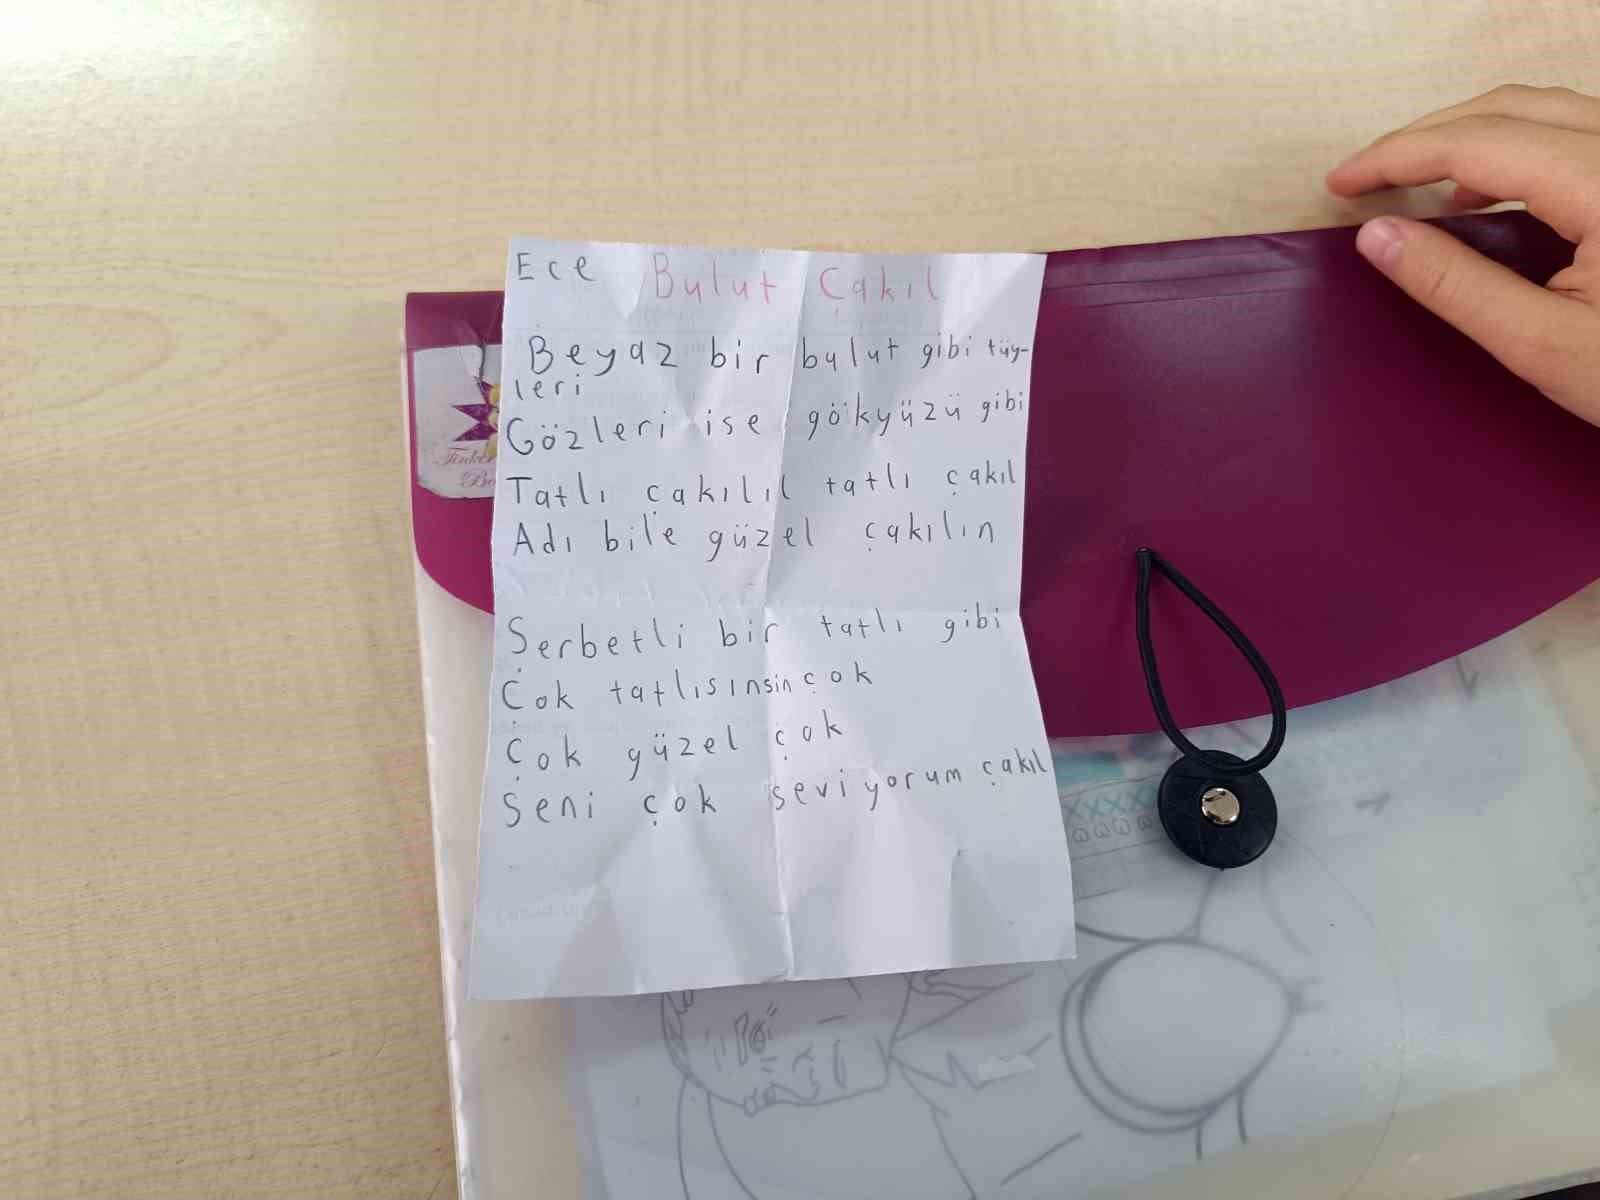 Ece Bulut Çakıl
Beyaz bir bulut gibi tüy-
leri
Gözleri ise gökyüzü gibi
Tatlı çakılıl tatlı çakıl
Adı bile güzel çakılın
Şerbetli bir tatlı gibi
Çok tatlısınsin çok
Çok güzel çok
Seni çok seviyorum çakıl
Tinker
Be